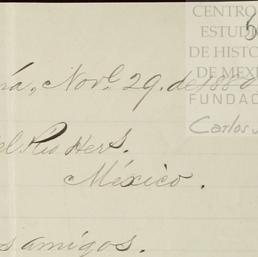 CENTRO
ESTUDI
DE HISTOR
DE MEXI
FUNDAC
Carlos S
Novb. 29. de 188
del Rio Hers.
México.
s amigos.